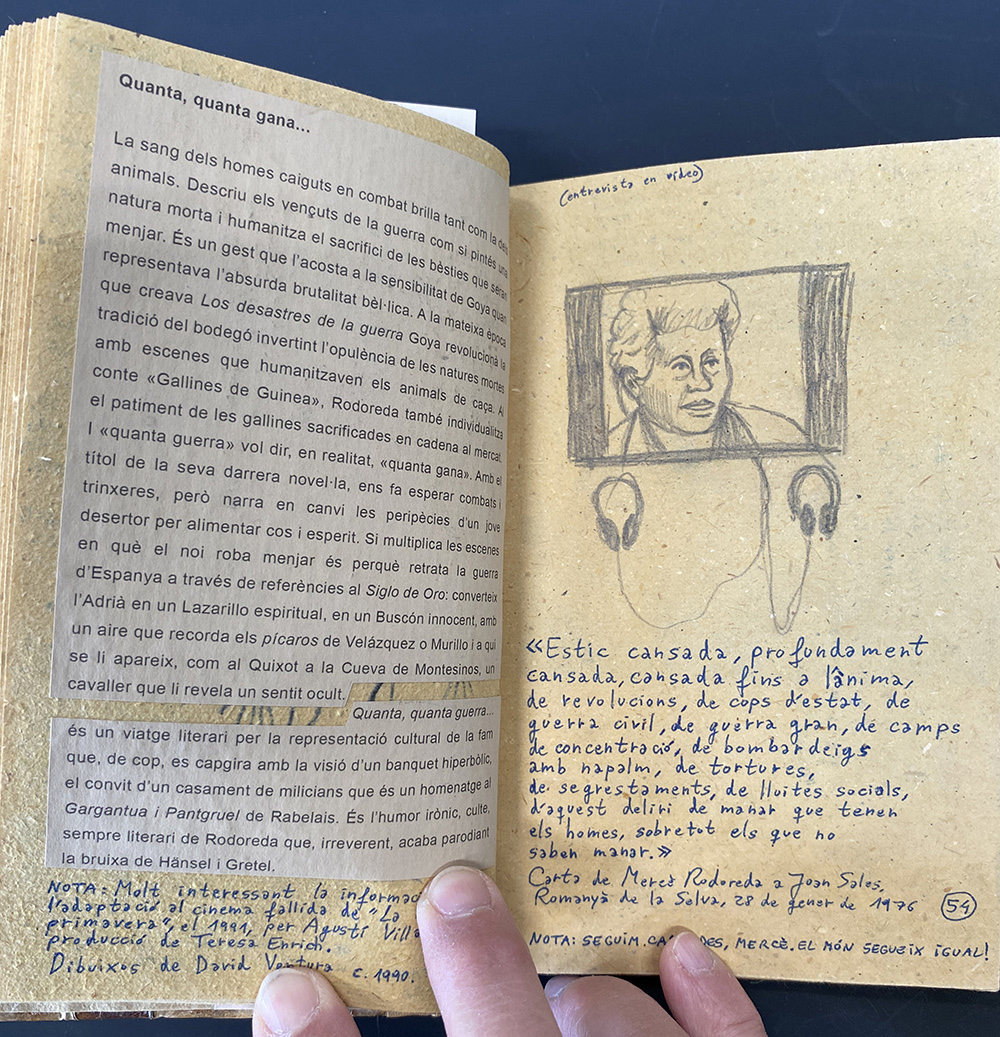 Quanta, quanta gana...
La sang dels homes caiguts en combat brilla tant com la dels
animals. Descriu els vençuts de la guerra com si pintés una
natura morta i humanitza el sacrifici de les bèsties que seran
menjar. És un gest que l'acosta a la sensibilitat de Goya quan
representava l'absurda brutalitat bèl·lica. A la mateixa època
que creava Los desastres de la guerra Goya revolucionà la
tradició del bodegó invertint l'opulència de les natures mortes
amb escenes que humanitzaven els animals de caça. Al
conte «Gallines de Guinea», Rodoreda també individualitza
el patiment de les gallines sacrificades en cadena al mercat.
I «quanta guerra» vol dir, en realitat, «quanta gana». Amb el
títol de la seva darrera novel·la, ens fa esperar combats i
trinxeres, però narra en canvi les peripècies d'un jove
desertor per alimentar cos i esperit. Si multiplica les escenes
en què el noi roba menjar és perquè retrata la guerra
d'Espanya a través de referències al Siglo de Oro: converteix
l'Adrià en un Lazarillo espiritual, en un Buscón innocent, amb
un aire que recorda els pícaros de Velázquez o Murillo i a qui
se li apareix, com al Quixot a la Cueva de Montesinos, un
cavaller que li revela un sentit ocult.
Quanta, quanta guerra...
és un viatge literari per la representació cultural de la fam
que, de cop, es capgira amb la visió d'un banquet hiperbòlic,
el convit d'un casament de milicians que és un homenatge al
Gargantua i Pantgruel de Rabelais. És l'humor irònic, culte,
sempre literari de Rodoreda que, irreverent, acaba parodiant
la bruixa de Hänsel i Gretel.
NOTA: Molt interessant la informac
l'adaptació al cinema fallida de "La
primavera", el 1991, per Agustí Villa
producció de Teresa Enrich.
Dibuixos de David Ventura c. 1990.
(entrevista en vídeo)
«Estic cansada, profundament
cansada, cansada fins a l'ànima,
de revolucions, de cops d'estat, de
guerra civil, de guerra gran, de camps
de concentració, de bombardeigs
amb napalm, de tortures,
de segrestaments, de lluites socials,
d'aquest deliri de manar que tenen
els homes, sobretot els que no
saben manar.»
Carta de Mercè Rodoreda a Joan Sales,
Romanyà de la Selva, 28 de gener de 1976
54
NOTA: SEGUIM CA DES, MERCÈ. EL MÓN SEGUEIX IGUAL!